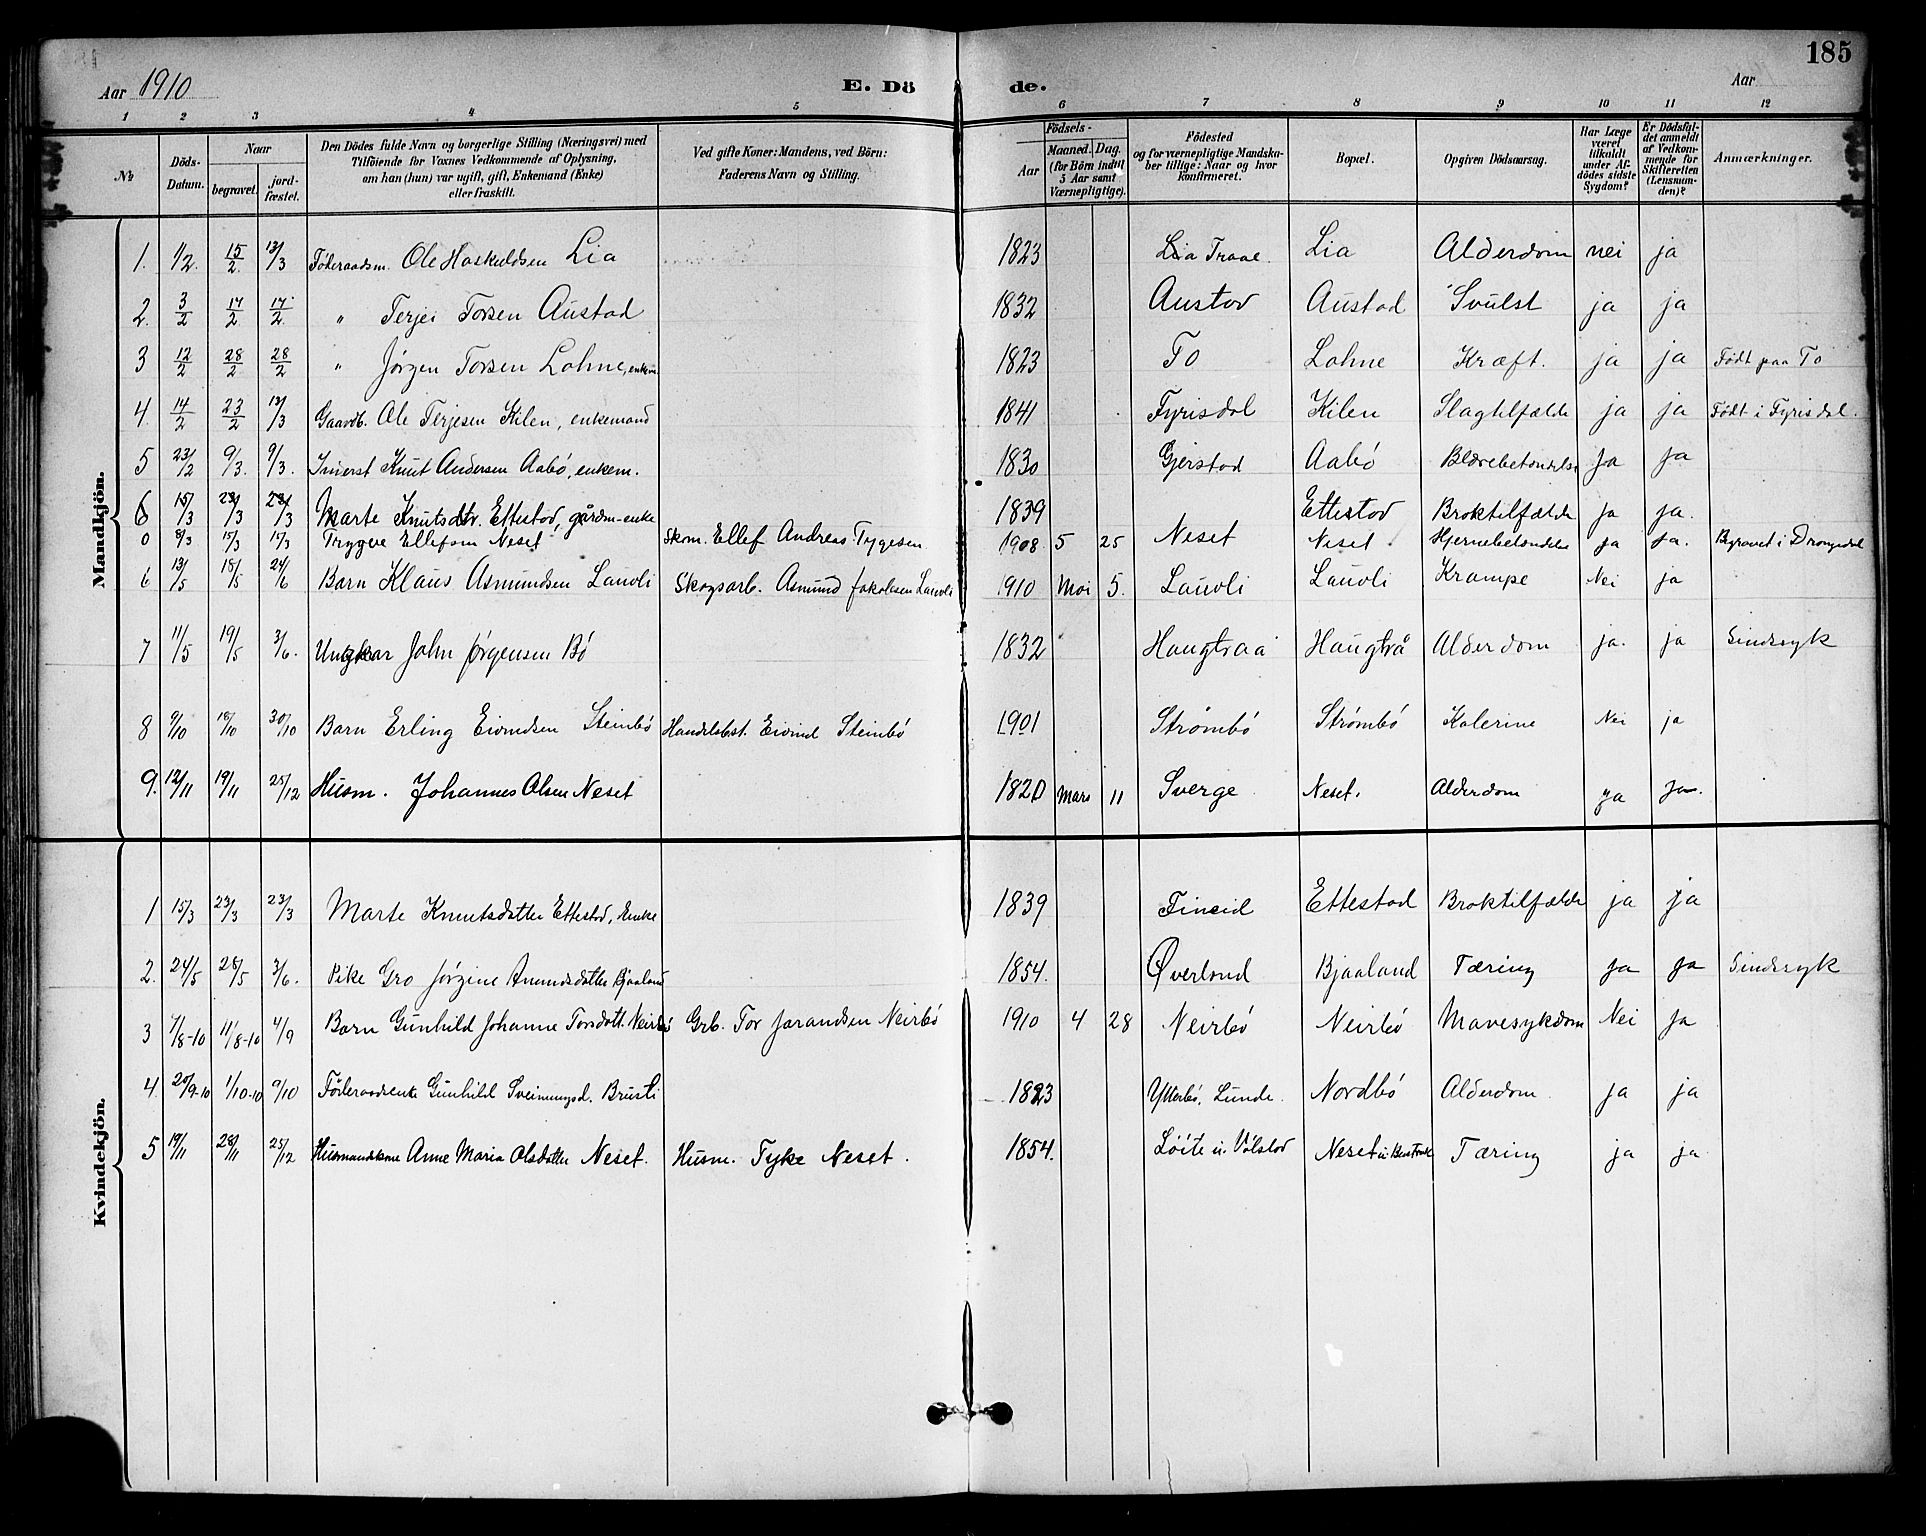 185
Aar 1910 E. Döde. Aar
1 2 3 4 5 6 7 8 9 10 11 12
No Döds-Datum. Naar begravet. jordfæstet. Den Dödes fulde Navn og borgerlige Stilling (Næringsvei) med Tilföiende for Voxnes Vedkommende af Oplysning, om han (hun) var ugift, gift, Enkemand (Enke) eller fraskilt. Ved gifte Koner: Mandens, ved Börn: Faderens Navn og Stilling. Födsels- Aar Maaned. Dag. (for Börn indtil 5 Aar samt Værnepligtige). Födested og for værnepligtige Mandskaber tillige: Naar og hvor konfirmeret. Bopæl. Opgiven Dödsaarsag. Har Læge været tilkaldt under Afdödes sidste Sygdom? Er Dödsfaldet anmeldt af Vedkommende for Skifteretten (Lensmanden)? Anmærkninger.
Mandkjön.
1. 1/2. 15/2. 13/3 Föderaadsm. Ole Haskuldsen Lia 1823 Lia Traae. Lia Alderdom nei ja
2. 3/2 17/2 17/2 " Terjei Torsen Austad 1832 Austad Austad Svulst ja ja
3 12/2 28/2 28/2 " Jørgen Torsen Lohne, enkem 1823 To Lohne Kræft. ja ja Født paa To
4. 14/2 23/2 13/3 Gaardb. Ole Terjesen Kilen, enkemand 1841 Fyrisdal Kilen Slagtilfælde ja ja Født i Fyrisdal.
5 23/2 9/3. 9/3. Inderst Knut Andersen Aabö, enkem. 1830 Gjerstad Aabö Blærebetændelse ja ja
6 15/3 23/3 23/3 Marte Knutsdtr. Ettestad, gårdm-enke 1839 Ettestad Broktilfælde ja ja.
0 8/3 15/3 15/3 Trygve Ellefsøn Neset Skom. Ellef Andreas Tygesen 1908. 5 25 Neset Neset Hjernebetændelse ja ja. Begravet i Drangedal
6 13/5 18/5 24/6 Barn Klaus Asmundsen Lauvli Skogsarb. Asmund Jakobsen Lauvli 1910 Mai 5. Lauvli Lauvli Krampe Nei ja
7 11/5 19/5 3/6. Ungkar John Jørgensen Bö 1832 Haugtraa Haugtrå Alderdom ja. ja Sindssyk
8 9/10 18/10 30/10 Barn Erling Eivindsen Steinbö Handelsbst. Eivind Steinbö 1901 Strømbö Strømbö Kolerine Nei ja
9. 12/11 19/11 25/12 Husm. Johannes Olsen Neset 1820 Mars 11 Sverge Neset. Alderdom ja ja.
Kvindekjön.
1 15/3 23/3 23/3 Marte Knutsdatter Ettestad, Enke 1839 Fineid Ettestad Broktilfælde ja ja
2. 24/5 28/5 3/6. Pike Gro Jørgine Amundsdatter Bjaaland 1854. Øverland Bjaaland Tæring ja ja Sindssyk
3 7/8-10 11/8-10 4/9 Barn Gunhild Johanne Torsdatt. Neirbö Grb. Tor Jarandsen Neirbö 1910 4 28 Neirbö Neirbö Mavesykdom Nei ja
4. 20/9-10 1/10-10 9/10 Föderaadsenke Gunhild Sveinungsd. Brusli 1823 Ytterbö, Lunde. Nordbö Alderdom. ja ja
5 19/11 28/11 25/12 Husmandskone Anne Maria Olsdatter Neset. Husm. Tyke Neset. 1854. Löite u. Völstad Neset u. Tæring ja ja